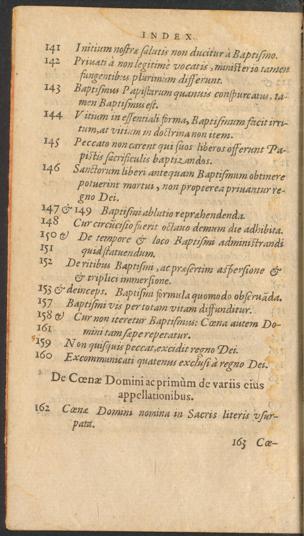 INDEX.
141 Initium nostræ salutis non ducitur à Baptismo.
142 Priuati à non legitimè vocatis, ministerio tamen
fungentibus plurimùm differunt.
143 Baptismus Papistarum quanuis conspurcatus, ta-
men Baptismus est.
144 Vitium in essentiali forma, Baptismum facit irri-
tum, at vitium in doctrina non item.
145 Peccato non carent qui suos liberos offerunt Pa-
pistis sacrificulis baptizandos.
146 Sanctorum liberi antequam Baptismum obtinere
potuerint mortui, non propterea priuantur re-
gno Dei.
147 & 149 Baptismi ablutio reprahendenda.
148 Cur circūcisio fuerit octauo demum die adhibita.
150 & De tempore & loco Baptismi administrandi
151 quid statuendum.
152 De ritibus Baptismi, ac præsertim aspersione &
& triplici immersione.
153 & deinceps. Baptismi formula quomodo obseruāda.
157 Baptismi vis per totam vitam diffunditur.
158 & Cur non iteretur Baptismus: Cœna autem Do-
161 mini tam sæpe repetatur.
159 Non quisquis peccat, excidit regno Dei.
160 Excommunicati quatenus exclusi à regno Dei.
De Cœnæ Domini ac primùm de variis eius
appellationibus.
162 Cœnæ Domini nomina in Sacris literis vsur-
pata.
163 Cœ-